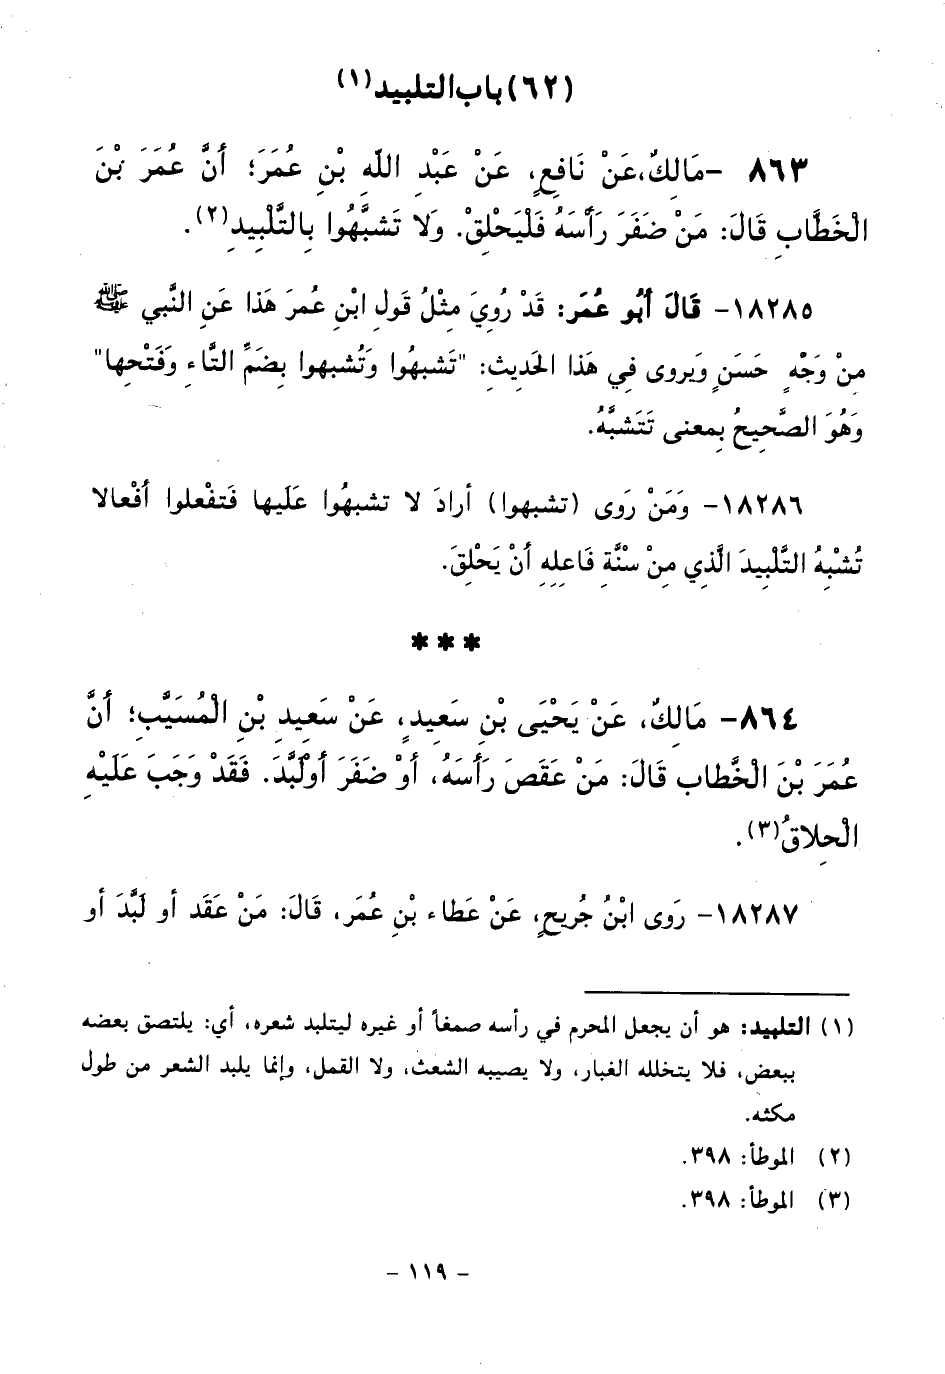 (٦٢) باب التلبيد(١)
٨٦٣ -مَالِكٌ،عَنْ نَافِعٍ، عَنْ عَبْدِ اللَّهِ بْنِ عُمَرَ؛ أَنَّ عُمَرَ بْنَ
الْخَطَّابِ قَالَ: مَنْ ضَفَرَ رَأْسَهُ فَلْيَحْلِقْ. وَلَا تَشَبَّهُوا بِالتَّلْبِيدِ(٢).
١٨٢٨٥- قَالَ أَبُو عُمَر: قَدْ رُوِيَ مِثْلُ قَولِ ابْنِ عُمرَ هَذَا عَنِ النَّبي ﷺ
مِنْ وَجْهٍ حَسَنٍ وَيروى فِي هَذا الحَديثِ: "تَشبهُوا وَتُشبهوا بِضَمِّ التَّاءِ وَفَتْحِها"
وَهُوَ الصَّحيحُ بِمعنى تَتَشبَّهُ.
١٨٢٨٦- وَمَنْ رَوى (تشبهوا) أرادَ لا تشبهُوا عَلَيها فَتفْعلوا أفْعالا
تُشْبهُ التَّلْبِيدَ الَّذي مِنْ سُنَّةِ فَاعلِهِ أنْ يَحْلِقَ.
***
٨٦٤- مَالِكٌ، عَنْ يَحْيَى بْنِ سَعِيدٍ، عَنْ سَعِيدِ بْنِ الْمُسَيَّبِ؛ أَنَّ
عُمَرَ بْنَ الْخَّطابِ قَالَ: مَنْ عَقَصَ رَأْسَهُ، أَوْ ضَفَرَ أَوْلَبَّدَ. فَقَدْ وَجَبَ عَلَيْهِ
الْحِلاقُ(٣).
١٨٢٨٧- رَوى ابْنُ جُريحٍ، عَنْ عَطاء بْنِ عُمَر، قَالَ: مَنْ عَقَد أو لَبَّدَ أو
(١) التلبيد: هو أن يجعل المحرم في رأسه صمغاً أو غيره ليتلبد شعره، أي: يلتصق بعضه
ببعض، فلا يتخلله الغبار، ولا يصيبه الشعث، ولا القمل، وإنما يلبد الشعر من طول
مكثه.
(٢) الموطأ: ٣٩٨.
(٣) الموطأ: ٣٩٨.
- ١١٩ -